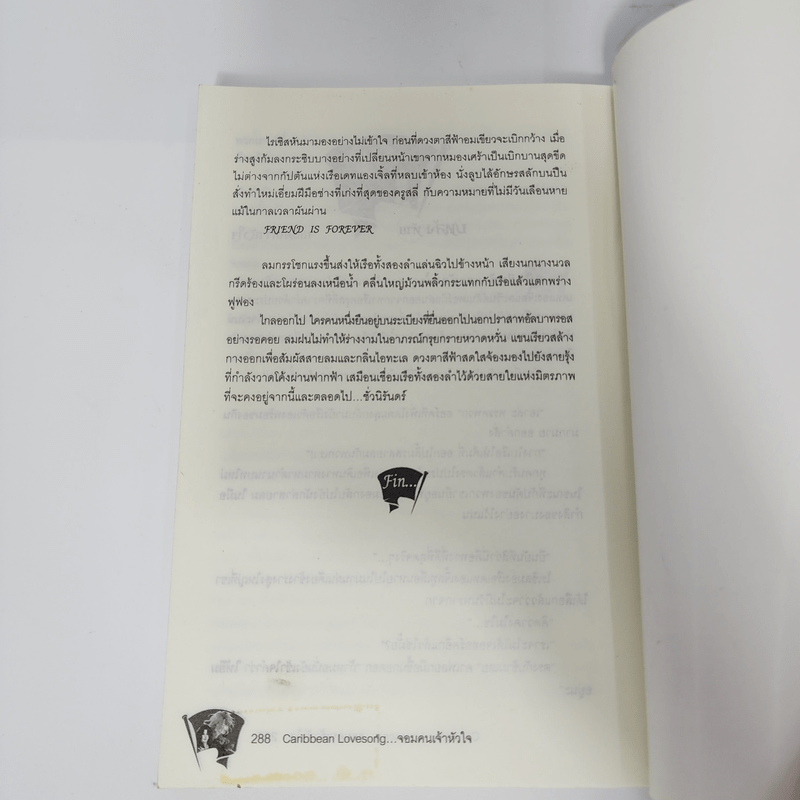 ไรเซิสหันมามองอย่างไม่เข้าใจ ก่อนที่ดวงตาสีฟ้าอมเขียวจะเบิกกว้าง เมื่อ
ร่างสูงก้มลงกระซิบบางอย่างที่เปลี่ยนหน้าเขาจากหมองเศร้าเป็นเบิกบานสุดขีด
ไม่ต่างจากกัปตันแห่งเรือเดทแองเจิ้ลที่หลบเข้าห้อง นั่งลูบไล้อักษรสลักบนปืน
สั่งทำใหม่เอี่ยมฝีมือช่างที่เก่งที่สุดของครูสลี่ กับความหมายที่ไม่มีวันเลือนหาย
แม้ในกาลเวลาผันผ่าน
FRIEND IS FOREVER
ลมกรรโชกแรงขึ้นส่งให้เรือทั้งสองลำแล่นฉิวไปข้างหน้า เสียงนกนางนวล
กรีดร้องและโผร่อนลงเหนือน้ำ คลื่นใหญ่ม้วนพลิ้วกระแทกกับเรือแล้วแตกพร่าง
ฟูฟอง
ไกลออกไป ใครคนหนึ่งยืนอยู่บนระเบียงที่ยื่นออกไปนอกปราสาทอัลบาทรอส
อย่างรอคอย ลมฝนไม่ทำให้ร่างงามในอาภรณ์กรุยกรายหวาดหวั่น แขนเรียวสล้าง
กางออกเพื่อสัมผัสสายลมและกลิ่นไอทะเล ดวงตาสีฟ้าสดใสจ้องมองไปยังสายรุ้ง
ที่กำลังวาดโค้งผ่านฟากฟ้า เสมือนเชื่อมเรือทั้งสองลำไว้ด้วยสายใยแห่งมิตรภาพ
ที่จะคงอยู่จากนี้และตลอดไป...ชั่วนิรันดร์
Fin...
288 Caribbean Lovesong...จอมคนเจ้าหัวใจ